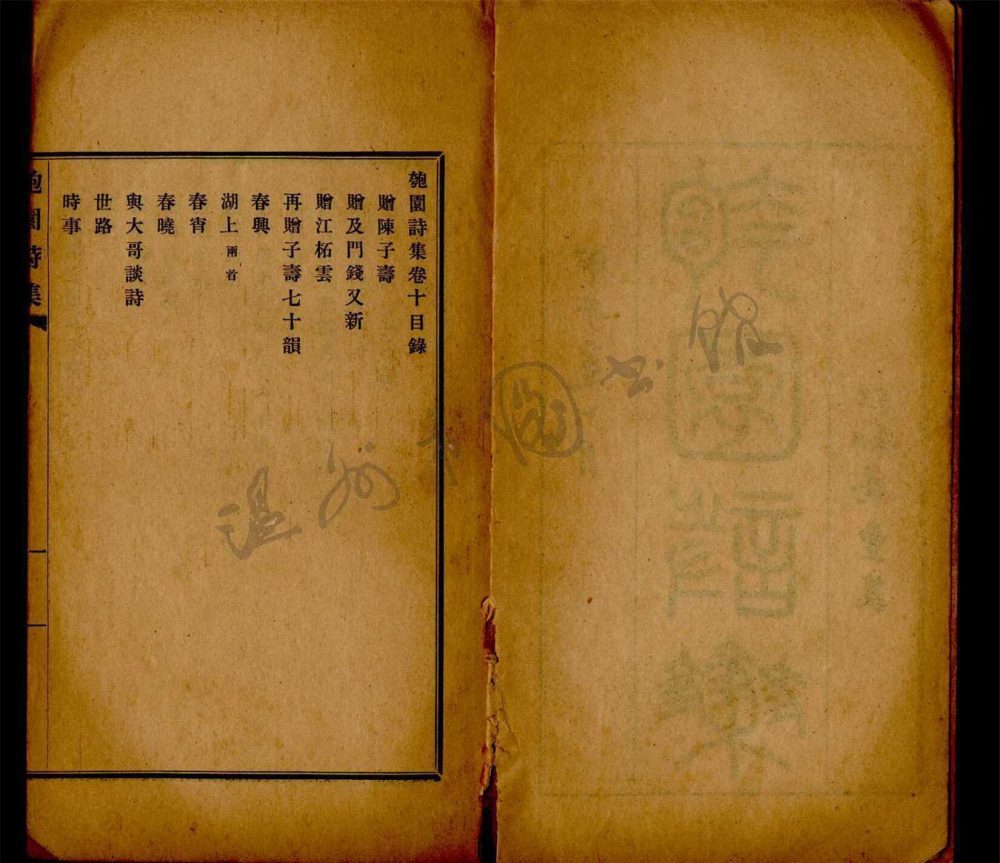 匏園詩集卷十目錄
贈陳子壽
贈及門錢又新
贈江柘雲
再贈子壽七十韻
春興
湖上 兩首
春宵
春曉
與大哥談詩
世路
時事
匏園詩集
溫州市圖书館